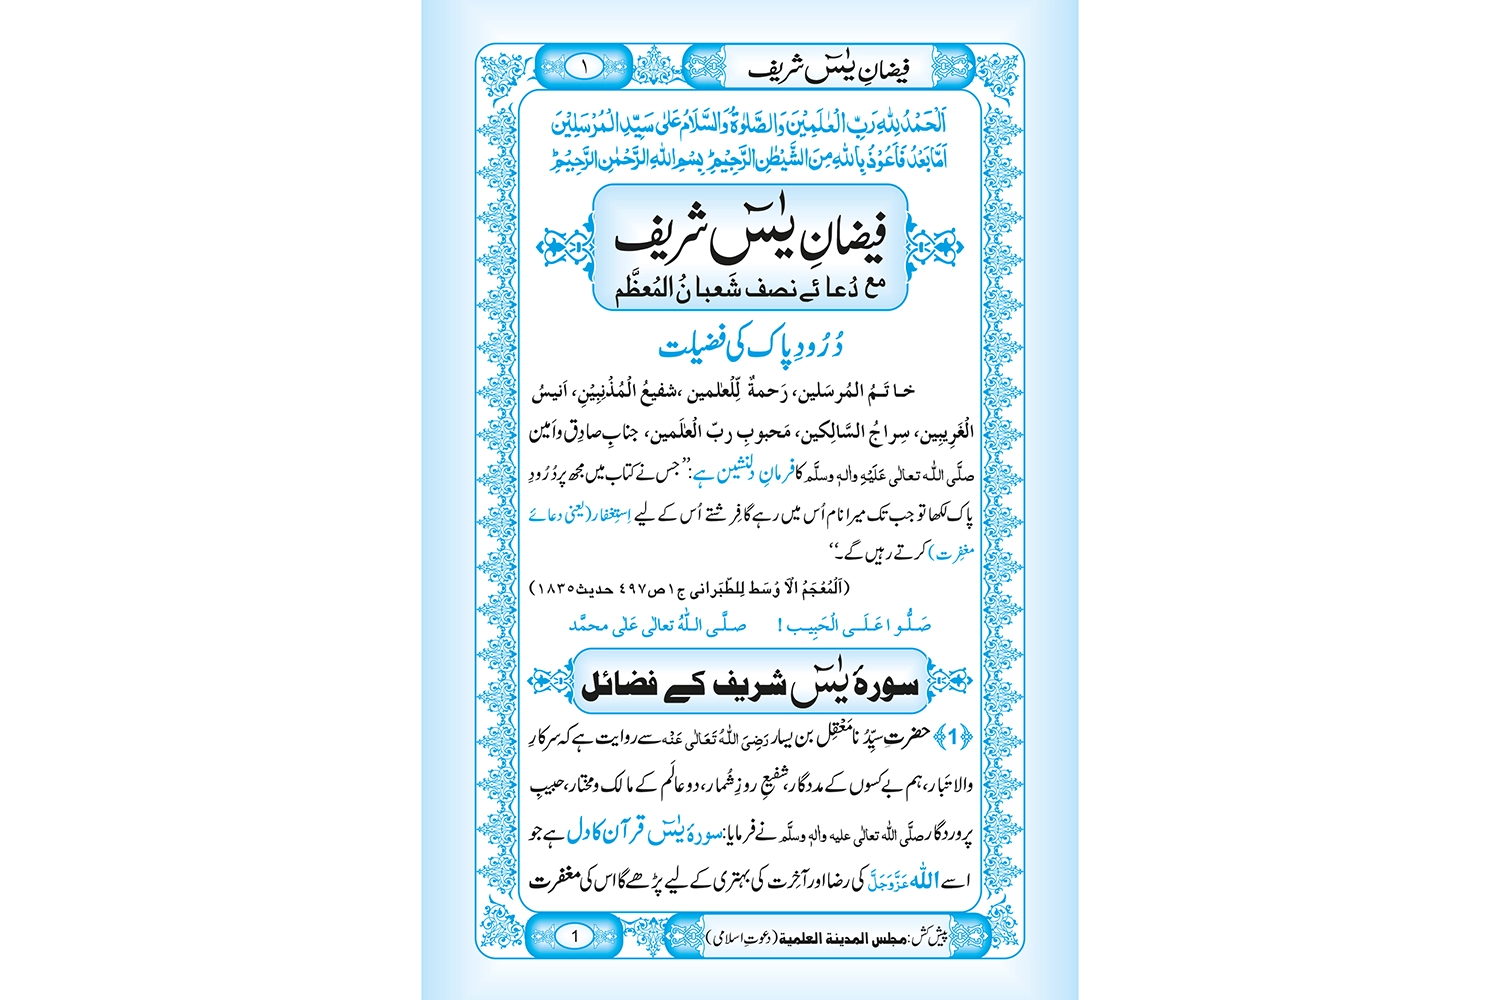 فیضانِ یٰسٓ شریف
۱
اَلْحَمْدُ لِلّٰهِ رَبِّ الْعٰلَمِیْنَ وَالصَّلٰوةُ وَالسَّلَامُ عَلٰی سَیِّدِ الْمُرْسَلِیْنَ
اَمَّا بَعْدُ فَاَعُوْذُ بِاللّٰهِ مِنَ الشَّیْطٰنِ الرَّجِیْمِؕ بِسْمِ اللّٰهِ الرَّحْمٰنِ الرَّحِیْمِؕ
فیضانِ یٰسٓ شریف
مع دُعائے نصف شَعبانُ المُعظَّم
دُرُودِ پاک کی فضیلت
خاتَمُ المُرسَلین، رَحمةٌ لِّلْعٰلمین، شفیعُ الْمُذْنِبِیْنِ، اَنیسُ
الْغَرِیبِین، سِراجُ السَّالِکین، مَحبوبِ ربِّ الْعٰلَمین، جنابِ صادِق و اَمین
صلَّی اللّٰہ تعالٰی عَلَیْہِ واٰلہٖ وسلَّم کا فرمانِ دلنشین ہے: ’’جس نے کتاب میں مجھ پر دُرُودِ
پاک لکھا تو جب تک میرا نام اُس میں رہے گا فِرِشتے اُس کے لیے اِستِغفار (یعنی دعائے
مغفِرت) کرتے رہیں گے۔‘‘
(اَلْمُعْجَمُ الْاَ وُسَط لِلطّبَرانی ج۱ص۴۹۷ حدیث۱۸۳۵)
صَلُّوا عَلَی الْحَبِیب ! صلَّی اللّٰہُ تعالٰی عَلٰی محمَّد
سورۂ یٰسٓ شریف کے فضائل
﴿1﴾ حضرتِ سیِّدُنا مَعْقِل بن یسار رَضِیَ اللّٰہُ تَعَالٰی عَنْہ سے روایت ہے کہ سرکارِ
والا تَبار، ہم بے کسوں کے مددگار، شفیعِ روزِ شُمار، دو عالَم کے مالک و مختار، حبیبِ
پروردگار صلَّی اللّٰہ تعالٰی علیہ واٰلہٖ وسلَّم نے فرمایا: سورۂ یٰسٓ قرآن کا دل ہے جو
اسے اللّٰہ عَزَّوَجَلَّ کی رضا اور آخِرت کی بہتری کے لیے پڑھے گا اس کی مغفرت
پیش کش: مجلس المدینة العلمیة (دعوتِ اسلامی)
1